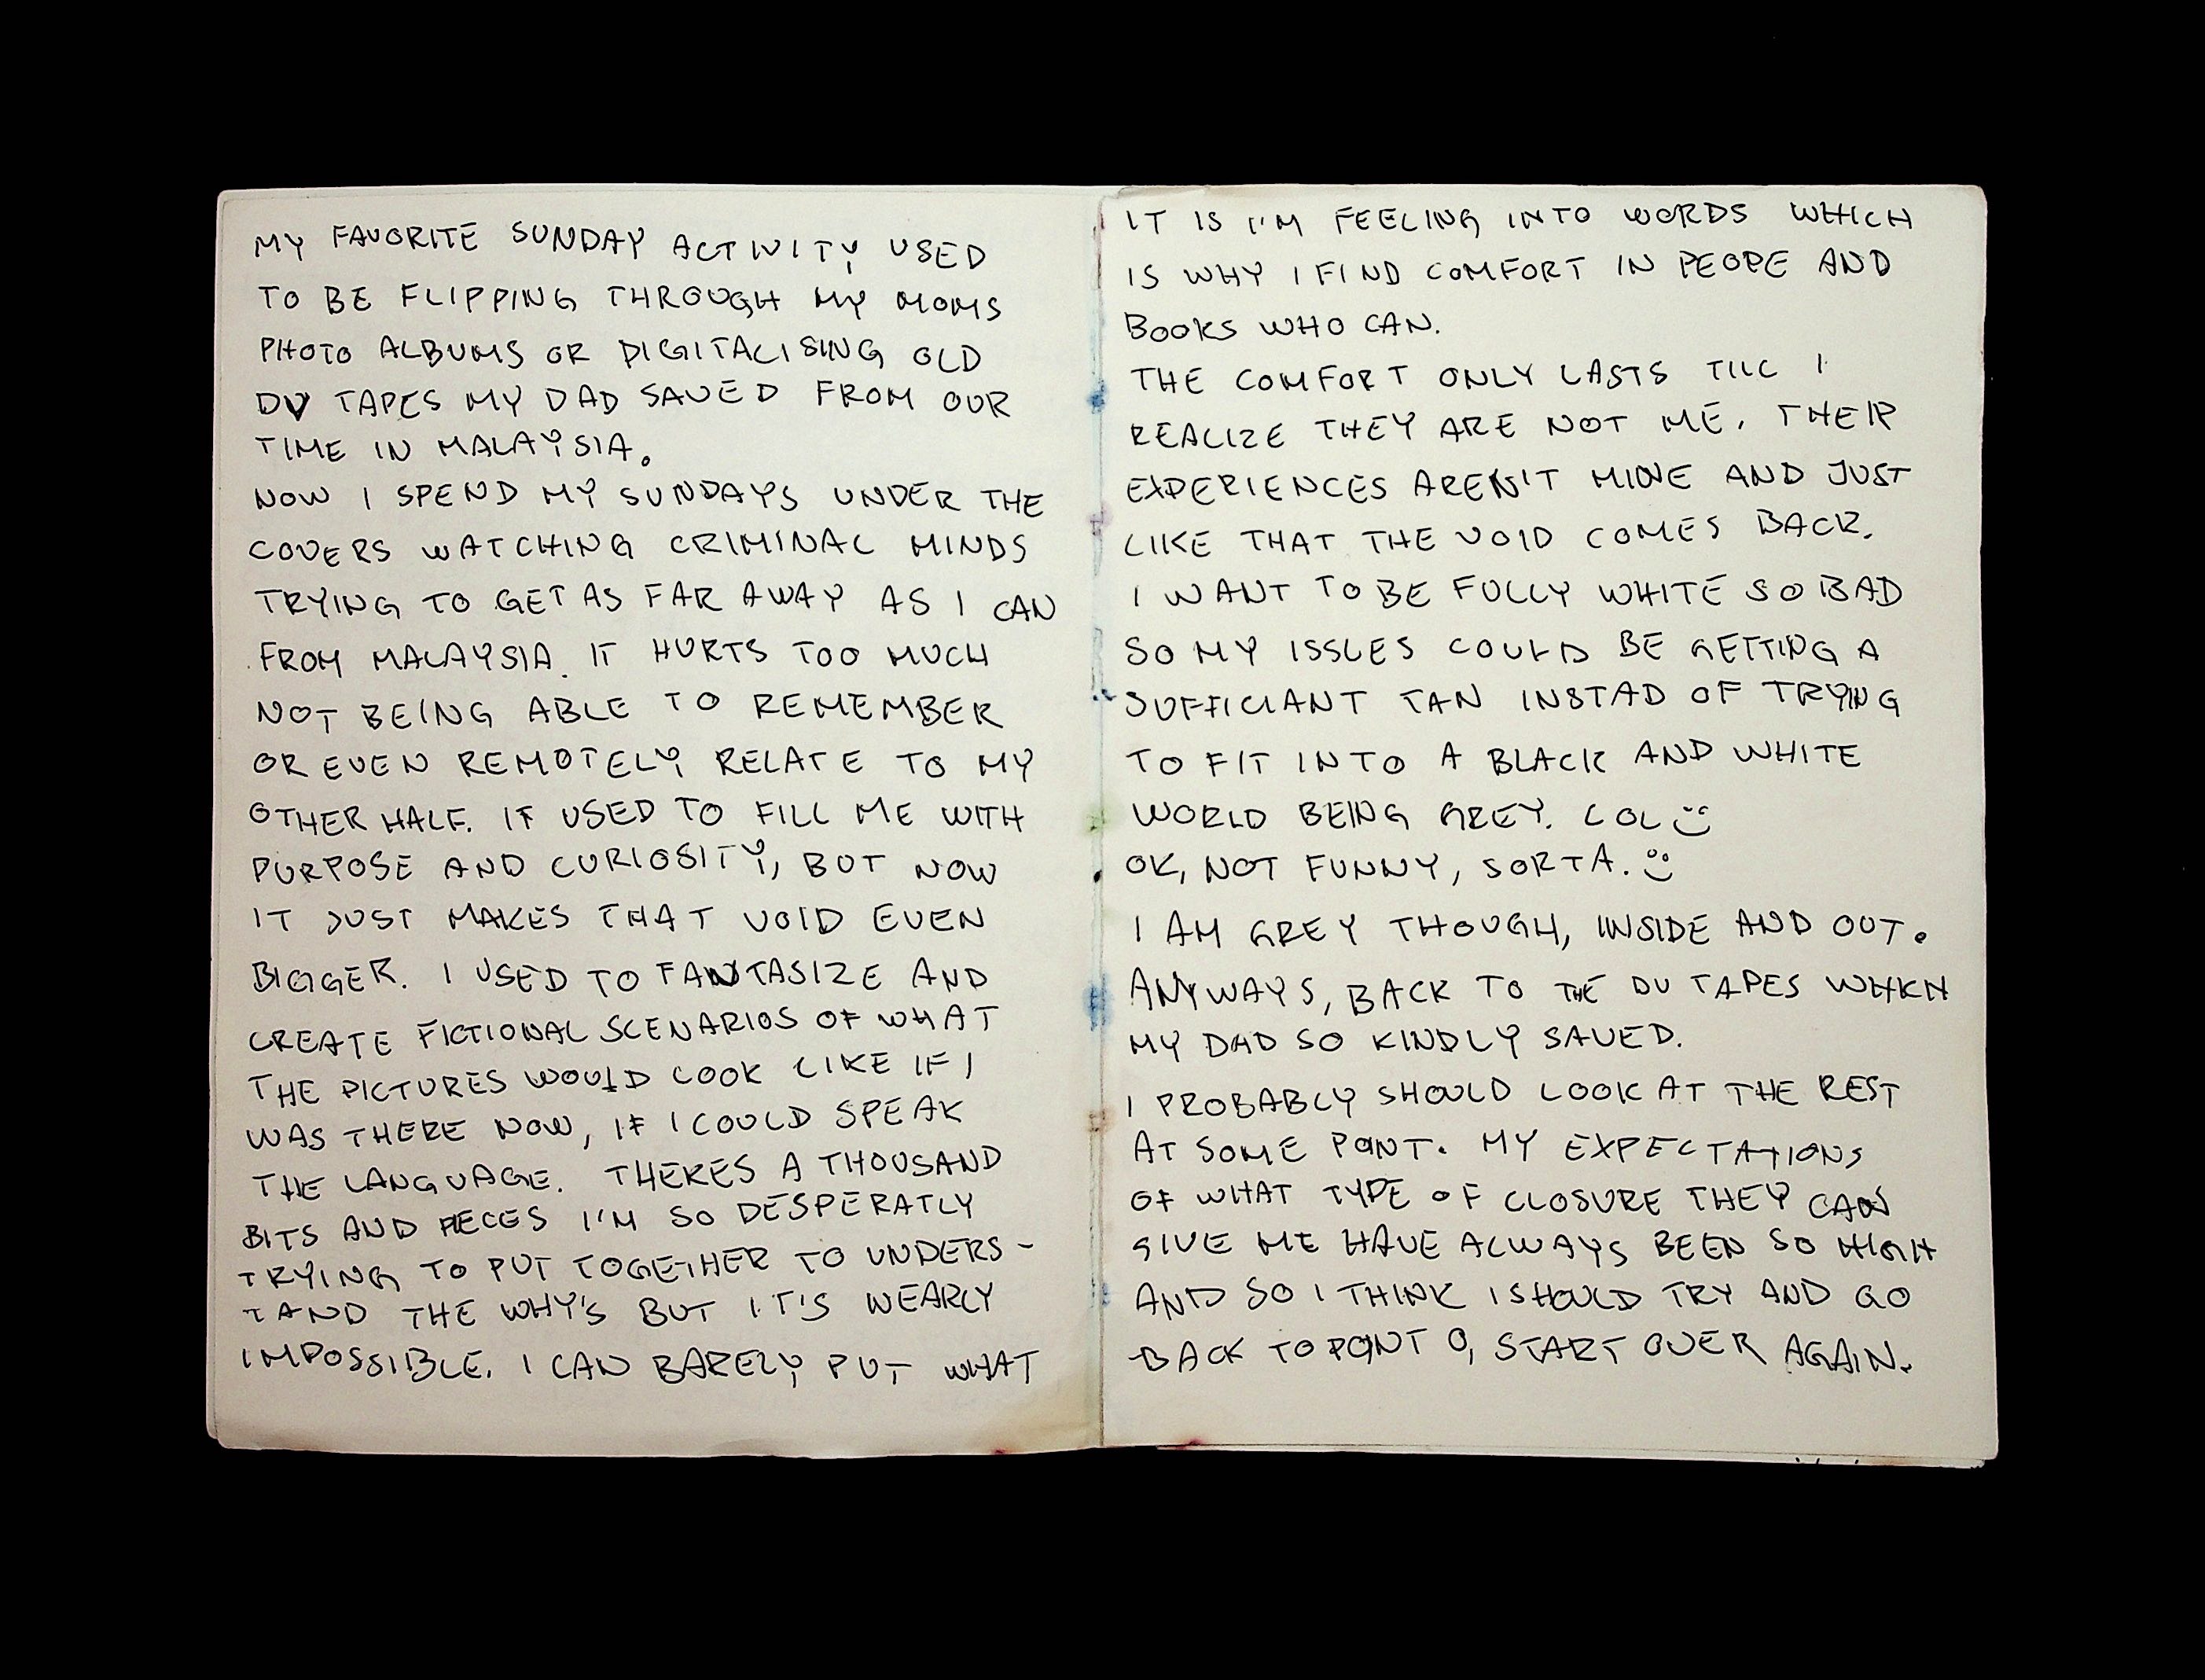 MY FAVORITE SUNDAY ACTIVITY USED
TO BE FLIPPING THROUGH MY MOMS
PHOTO ALBUMS OR DIGITALISING OLD
DV TAPES MY DAD SAVED FROM OUR
TIME IN MALAYSIA.
NOW I SPEND MY SUNDAYS UNDER THE
COVERS WATCHING CRIMINAL MINDS
TRYING TO GET AS FAR AWAY AS I CAN
FROM MALAYSIA. IT HURTS TOO MUCH
NOT BEING ABLE TO REMEMBER
OR EVEN REMOTELY RELATE TO MY
OTHER HALF. IT USED TO FILL ME WITH
PURPOSE AND CURIOSITY, BUT NOW
IT JUST MAKES THAT VOID EVEN
BIGGER. I USED TO FANTASIZE AND
CREATE FICTIONAL SCENARIOS OF WHAT
THE PICTURES WOULD LOOK LIKE IF I
WAS THERE NOW, IF I COULD SPEAK
THE LANGUAGE. THERES A THOUSAND
BITS AND PIECES I'M SO DESPERATLY
TRYING TO PUT TOGETHER TO UNDERS-
TAND THE WHY'S BUT IT'S NEARLY
IMPOSSIBLE. I CAN BARELY PUT WHAT
IT IS I'M FEELING INTO WORDS WHICH
IS WHY I FIND COMFORT IN PEOPE AND
BOOKS WHO CAN.
THE COMFORT ONLY LASTS TILL I
REALIZE THEY ARE NOT ME. THEIR
EXPERIENCES AREN'T MINE AND JUST
LIKE THAT THE VOID COMES BACK.
I WANT TO BE FULLY WHITE SO BAD
SO MY ISSUES COULD BE GETTING A
SUFFICIANT TAN INSTAD OF TRYING
TO FIT INTO A BLACK AND WHITE
WORLD BEING GREY. LOL :)
OK, NOT FUNNY, SORTA. :)
I AM GREY THOUGH, INSIDE AND OUT.
ANYWAYS, BACK TO THE DV TAPES WHICH
MY DAD SO KINDLY SAVED.
I PROBABLY SHOULD LOOK AT THE REST
AT SOME POINT. MY EXPECTATIONS
OF WHAT TYPE OF CLOSURE THEY CAN
GIVE ME HAVE ALWAYS BEEN SO HIGH
AND SO I THINK I SHOULD TRY AND GO
BACK TO POINT 0, START OVER AGAIN.